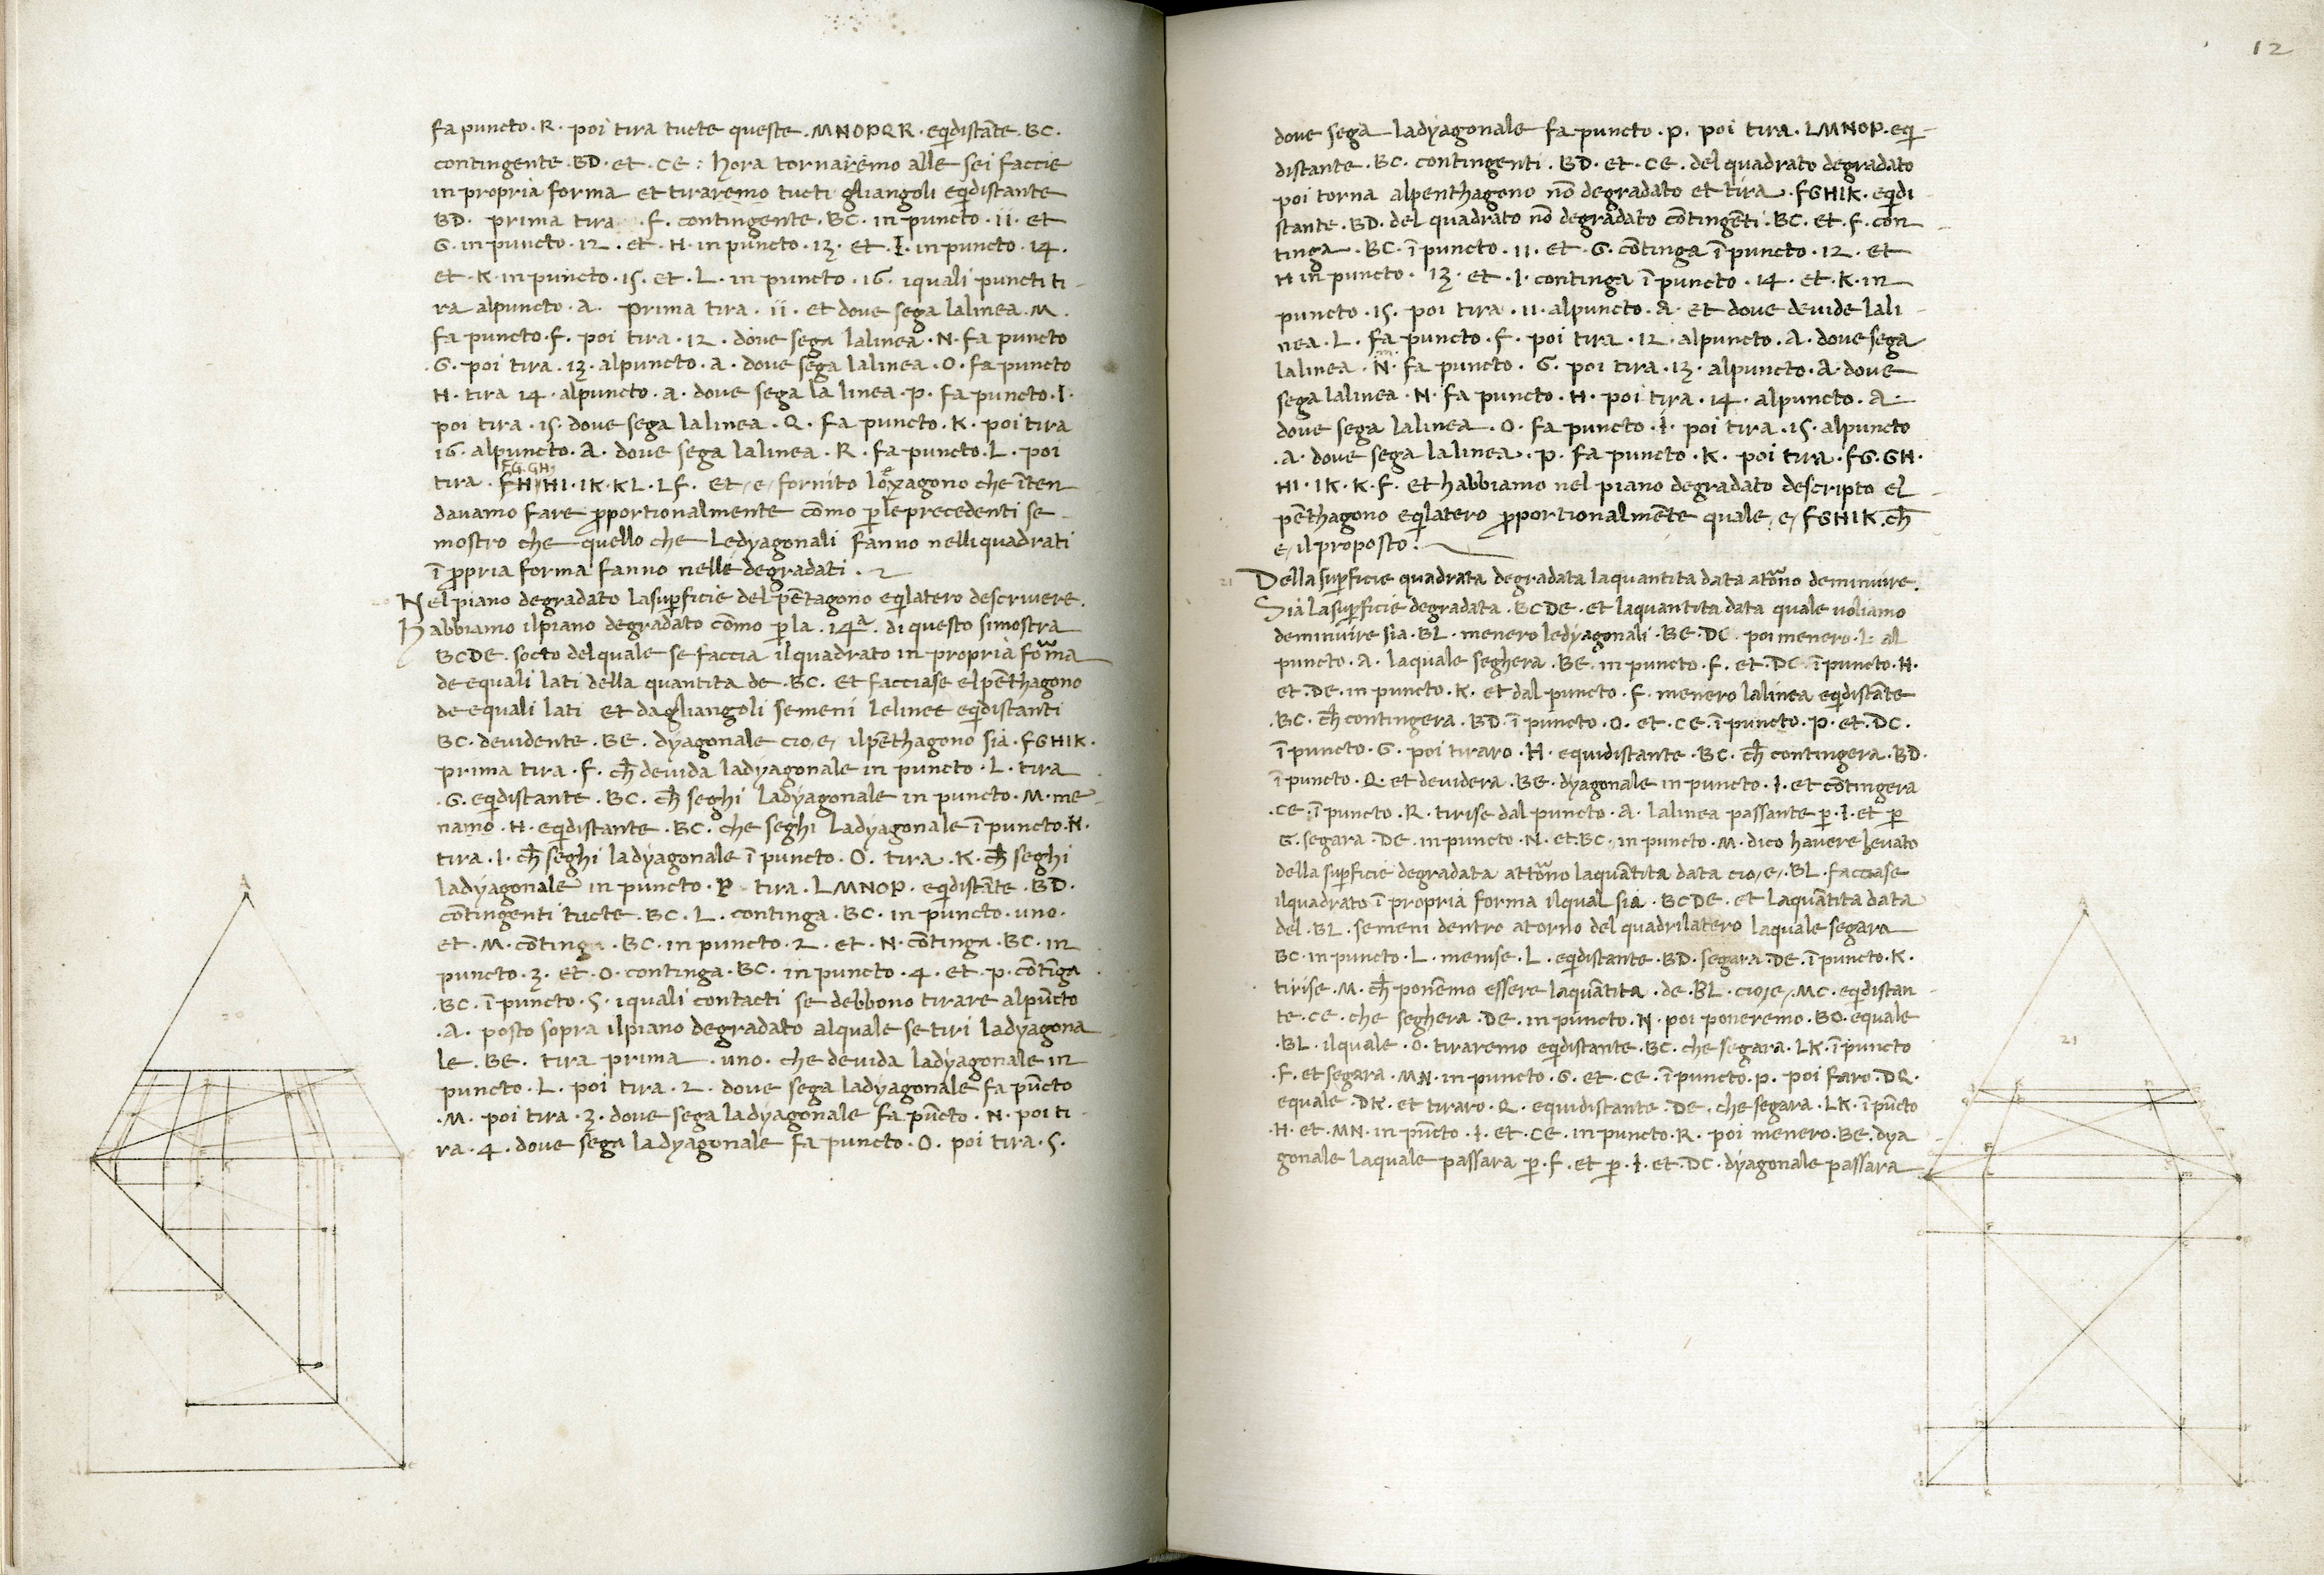 fa puncto .R. poi tira tucte queste .MNOPQR. eqidistāte .BC.
contingente .BD. et .CE: hora tornaremo alle sei faccie
in propria forma et tiraremo tucti gliangoli eqidistante
BD. prima tira .F. contingente .BC. in puncto .11. et
G. in puncto .12. et .H. in puncto .13. et .I. in puncto .14.
et .K. in puncto .15. et .L. in puncto .16. iquali puncti ti
ra alpuncto .A. prima tira .11. et dove sega lalinea .M.
fa puncto .F. poi tira .12. dove sega lalinea .N. fa puncto
.G. poi tira .13. alpuncto .a. dove sega lalinea .O. fa puncto
H. tira 14. alpuncto .a. dove sega la linea .P. fa puncto .I.
poi tira .15. dove sega lalinea .Q. fa puncto .K. poi tira
16. alpuncto .A. dove sega lalinea .R. fa puncto .L. poi
FG.GH
tira .FH.HI.IK.KL.LF. et e fornito loexagono che īten
davamo fare proportionalmente cōmo per leprecedenti se
mostro che quello che Ledyagonali fanno nelli quadrati
ī propria forma fanno nelle degradati.
Nel piano degradato lasuperficie del pētagono eqilatero descrivere.
Habbiamo ilpiano degradato cōmo per la .14a. di questo simostra
BCDE. socto delquale se faccia ilquadrato in propria forma
de equali lati della quantita de .BC. et facciase elpēthagono
de equali lati et dagliangoli semeni lelinee eqidistanti
BC. devidente .BE. dyagonale cioe ilpēthagono sia .FGHIK.
prima tira .F. ch̄ devida ladyagonale in puncto .L. tira
.G. eqidistante .BC. ch̄ seghi ladyagonale in puncto .M. me
namo .H. eqidistante .BC. che seghi ladyagonale ī puncto .N.
tira .I. ch̄ seghi ladyagonale ī puncto .O. tira .K. ch̄ seghi
ladyagonale in puncto .P. tira .LMNOP. eqidistāte .BD.
cōtingenti tucte .BC. L. continga .BC. in puncto .uno.
et .M. cōtinga .BC. in puncto .2. et .N. cōtinga .BC. in
puncto .3. et .O. continga .BC. in puncto .4. et .p. cōtīga
.BC. ī puncto .5. iquali contacti se debbono tirare alpūcto
.A. posto sopra ilpiano degradato alquale setiri ladyagona
le .BE. tira prima .uno. che devida ladyagonale in
puncto .L. poi tira .2. dove sega ladyagonale fa pūcto
.M. poi tira .3. dove sega ladyagonale fa pūcto .N. poi ti
ra .4. dove sega ladyagonale fa puncto .O. poi tira .5.
A
20
12
dove sega ladyagonale fa puncto .p. poi tira .LMNOP. eqi
distante .BC. contingenti .BD. et .CE. del quadrato degradato
poi torna alpenthagono nō degradato et tira .FGHIK. eqidi
stante .BD. del quadrato nō degradato cōtingēti .BC. et .F. con
tinga .BC. ī puncto .11. et .G. cōtinga ī puncto .12. et
H in puncto .13. et .I. continga ī puncto .14. et .K. in
puncto .15. poi tira .11. alpuncto .A. et dove devide lali
nea .L. fa puncto .F. poi tira .12. alpuncto .A. dove sega
lalinea .N. fa puncto .G. poi tira .13. alpuncto .A. dove
sega lalinea .N. fa puncto .H. poi tira .14. alpuncto .A.
dove sega lalinea .O. fa puncto .I. poi tira .15. alpuncto
.A. dove sega lalinea .p. fa puncto .K. poi tira .FG.GH.
HI.IK.K.F. et habbiamo nel piano degradato descripto el
pēthagono eqilatero proportionalmēte quale e FGHIK. ch̄
e ilproposto:
21 Della superficie quadrata degradata laquantita data atorno deminuire.
Sia lasuperficie degradata .BCDE. et laquantita data quale voliamo
deminuire sia .BL. menero ledyagonali .BE.DC. poi menero .L. al
puncto .A. laquale seghera .BE. in puncto .F. et .DC. ī puncto .H.
et .DE. in puncto .K. et dal puncto .F. menero lalinea eqidistāte
.BC. ch̄ contingera .BD. ī puncto .O. et .CE. ī puncto .P. et .DC.
ī puncto .G. poi tiraro .H. equidistante .BC. ch̄ contingera .BD.
ī puncto .Q. et devidera .BE. dyagonale in puncto .I. et cōtingera
.CE. ī puncto .R. tirise dal puncto .A. lalinea passante per .I. et per
G. segara .DE. in puncto .N. et .BC. in puncto .M. dico havere levato
della superficie degradata attorno laquātita data cioe .BL. facciase
ilquadrato ī propria forma ilqual sia .BCDE. et laquātita data
del .BL. semeni dentro atorno del quadrilatero laquale segara
BC. in puncto .L. menise .L. eqidistante .BD. segara .DE. ī puncto .K.
tirise .M. ch̄ ponemo essere laquātita .de .BL. cioe .MC. eqidistan
te .CE. che seghera .DE. in puncto .N. poi poneremo .BO. equale
.BL. ilquale .O. tiraremo eqidistante .BC. che segara .LK. ī puncto
.F. et segara .MN. in puncto .G. et .CE. ī puncto .p. poi faro .DQ.
equale .DK. et tiraro .Q. equidistante .DE. che segara .LK. ī pūcto
.H. et .MN. in pūcto .I. et .CE. in puncto .R. poi menero .BE. dya
gonale laquale passara per .F. et per .I. et .DC. dyagonale passara
A
21